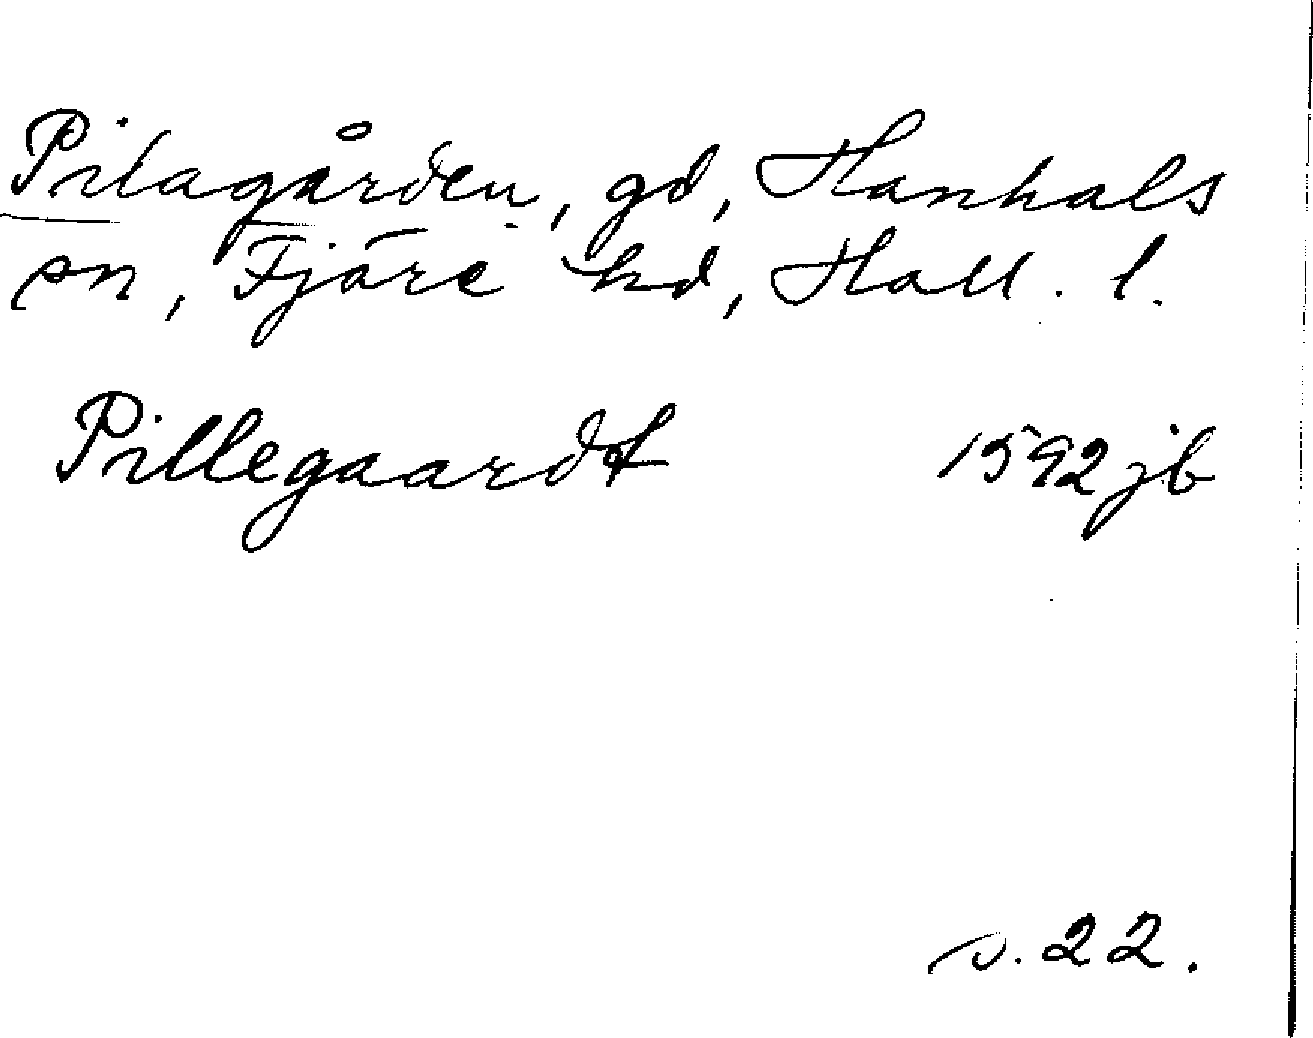 Pilagården, gd, Hanhals
sn, Fjäre hd, Hall. l.
Pillegaardt 1592 jb
s. 22.